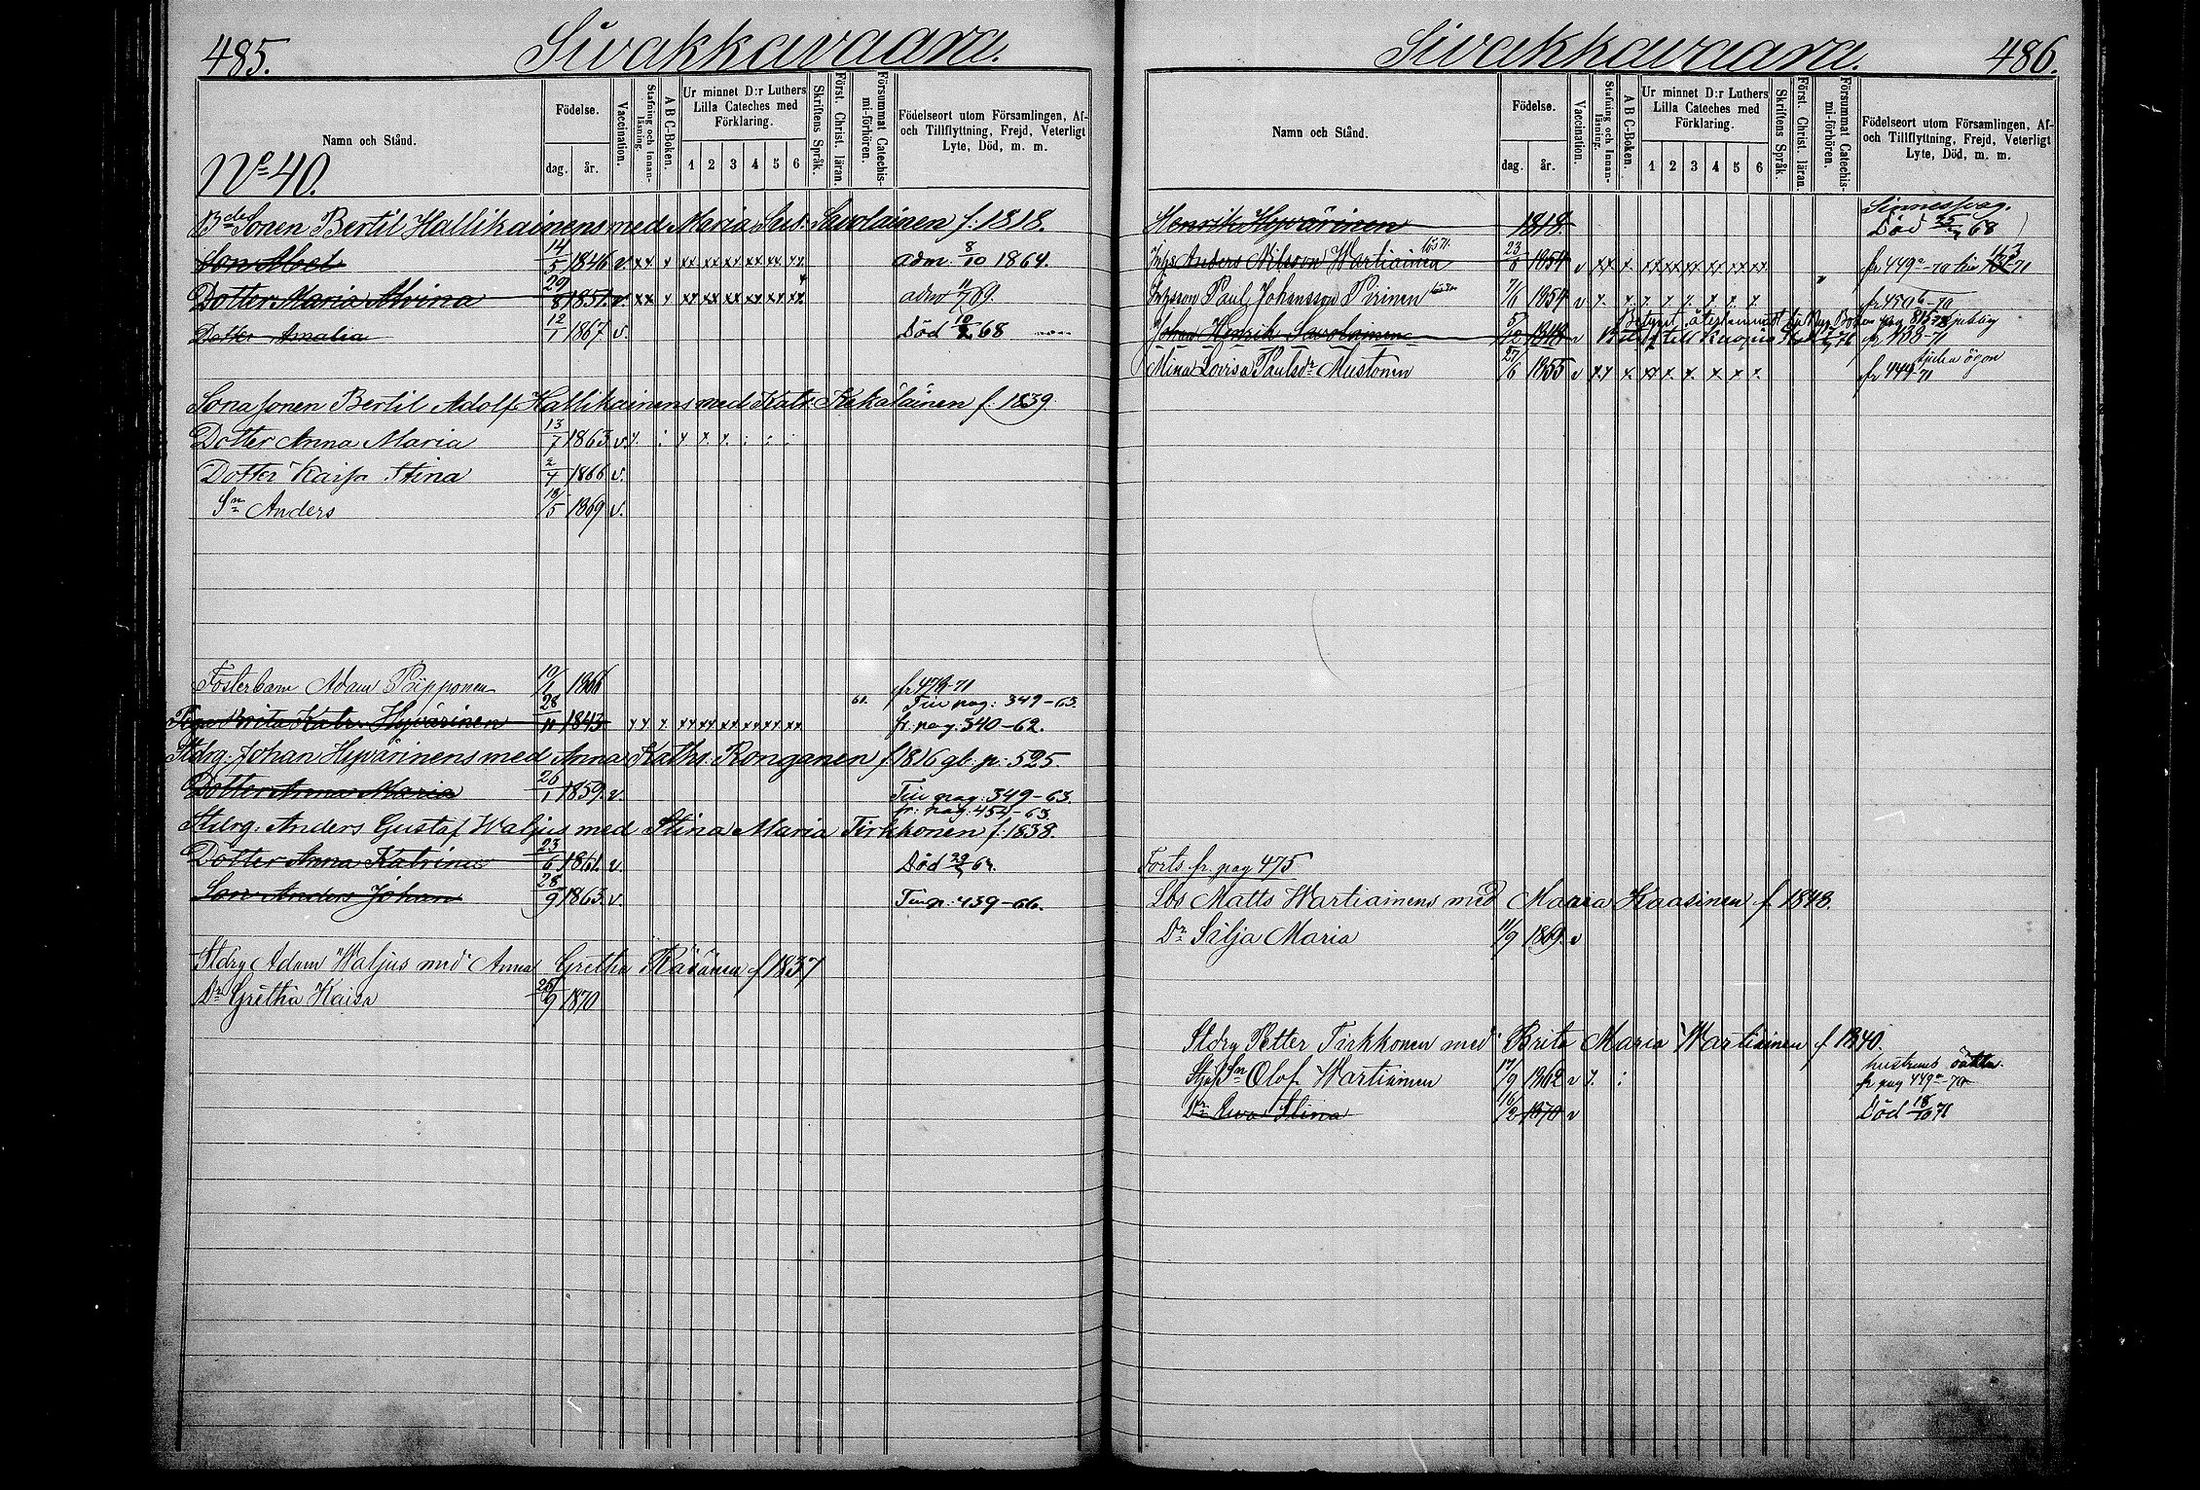 485. Sivakkavaara.
Namn och Stånd.
Födelse.
dag. år.
Vaccination.
Stafning och Innan-läsning.
A B C-Boken.
Ur minnet D:r Luthers Lilla Cateches med Förklaring.
1 2 3 4 5 6
Skriftens Språk.
Först. Christ. läran.
Försummat Catechis-mi-förhören.
Födelseort utom Församlingen, Af- och Tillflyttning, Frejd, Veterligt Lyte, Död, m. m.
No 40.
Bde Sonen Bertil Hallikainens med Maria Sus. Savolainen f. 1818.
Son Abel 14/5 1846 v. adm. 8/10 1864.
Dotter Maria Alvina 29/8 1851 v. adm 11/7 69.
Dotter Amalia 12/1 1867 v. Död 68
Sona sonen Bertil Adolf Hallikainens med Katr. Kekäläinen f. 1839
Dotter Anna Maria 13/7 1863 v.
Dotter Kaisa Stina 2/4 1866 v.
Sn Anders 18/5 1869 v.
Fosterbarn Adam Päpponen 10/1 1866 fr 478-71
Till pag: 349-63.
Brita Katr. Hyvärinen 28/11 1843 fr. pag. 340-62.
Stdrg. Johan Hyvärinens med Anna Kathr. Ronganen f 1816 gb. p. 525.
Dotter Anna Maria 26/1 1859 v. Till pag: 349-63.
fr: pag. 454-63.
Stdrg. Anders Gustaf Waljus med Stina Maria Tirkkonen f. 1838.
Dotter Anna Katrina 23/6 1861 v. Död
Son Anders Johan 28/9 1863 v. 439-66.
Stdrg Adam Waljus med Anna Gretha Räsänen f 1837
Dr Gretha Kaisa 1870
Sivakkavaara. 486.
Namn och Stånd.
Födelse.
dag. år.
Vaccination.
Stafning och Innan-läsning.
A B C-Boken.
Ur minnet D:r Luthers Lilla Cateches med Förklaring.
1 2 3 4 5 6
Skriftens Språk.
Först. Christ. läran.
Försummat Catechis-mi-förhören.
Födelseort utom Församlingen, Af- och Tillflyttning, Frejd, Veterligt Lyte, Död, m. m.
Sinnessvag.
Henrik Hyvärinen 1818 Död 68
Anders Nilsson Wartiainen 23/8 1854 v fr 449a-70
Paul Johansson Pirinen 7/6 1854 v fr 450b-70
Johan Henrik Savolainen 5/12 1848 v till Kuopio fr 488-71
Mina Lovisa Paulsdr Mustonen 27/6 1855 v fr 449/71
Forts fr. pag 475
Lbs Matts Wartiainens med Maaria Kaasinen f 1843.
Dr Silja Maria 11/9 1869 v
Stdrg Petter Tirkkonen med Brita Maria Wartiainen f 1840.
hustruns oäkta
Styf Sn Olof Wartiainen 17/9 1862 v fr pag 449a-70
Dr Eva Stina 16/2 1870 v Död 18/10 71